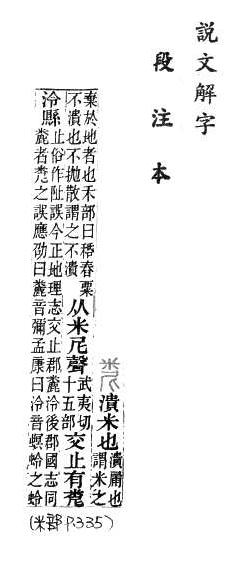 說文解字
段注本
潰米也
潰屚也
謂米之
棄於地者也禾部曰舂粟
不潰也不抛散謂之不潰
从米尼聲
武夷切
十五部
交止有
泠縣
止俗作阯誤今正地理志交止郡麊泠後郡國志同
麊者之誤應劭曰麊音彌孟康曰泠音螟蛉之蛉
(米部 P.335)